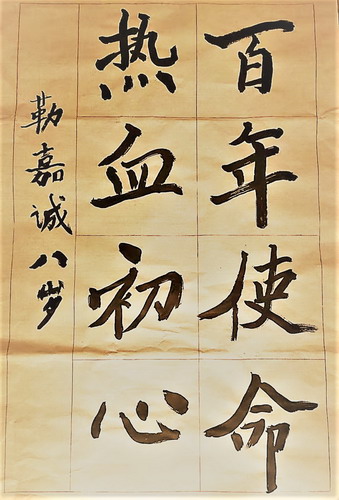 百年使命
热血初心
靳嘉诚八岁